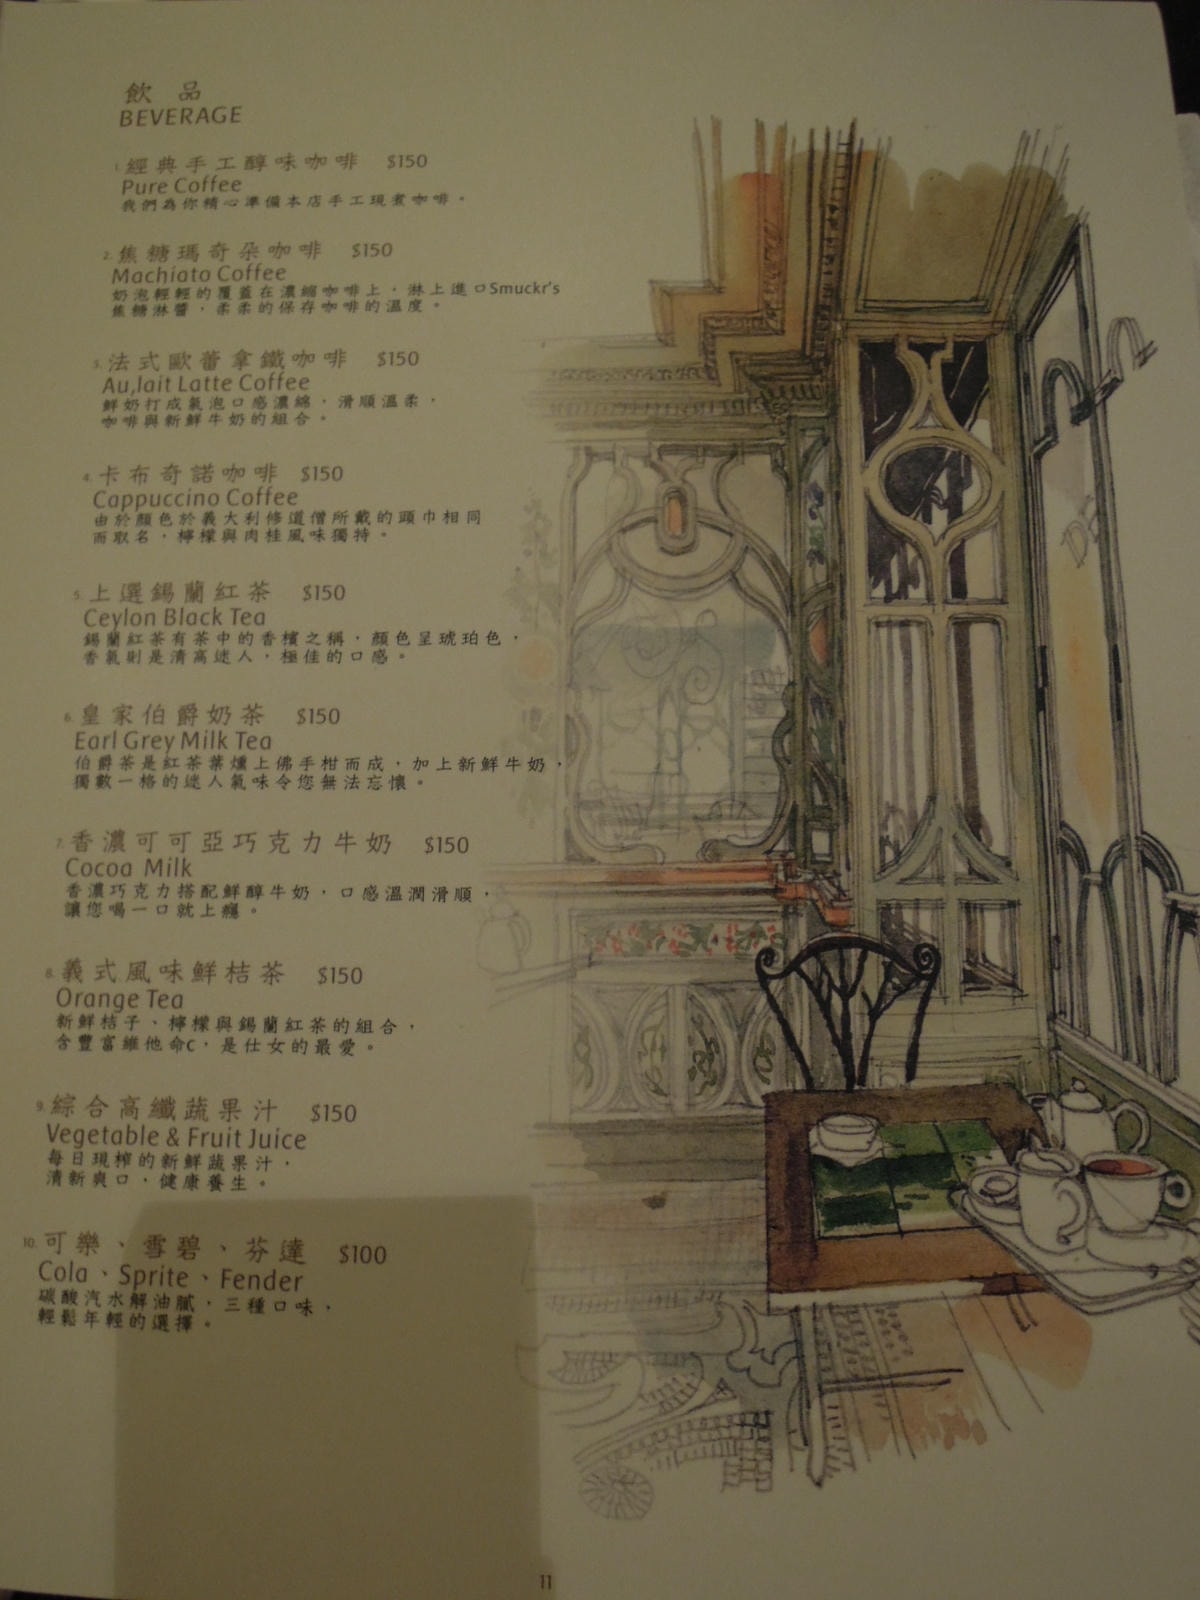 飲品
BEVERAGE
1. 經典手工醇味咖啡 $150
Pure Coffee
我們為你精心準備本店手工現煮咖啡。
2. 焦糖瑪奇朵咖啡 $150
Machiato Coffee
奶泡輕輕的覆蓋在濃縮咖啡上，淋上進口Smuckr's
焦糖淋醬，柔柔的保存咖啡的溫度。
3. 法式歐蕾拿鐵咖啡 $150
Au,lait Latte Coffee
鮮奶打成氣泡口感濃綿，滑順溫柔，
咖啡與新鮮牛奶的組合。
4. 卡布奇諾咖啡 $150
Cappuccino Coffee
由於顏色於義大利修道僧所戴的頭巾相同
而取名，檸檬與肉桂風味獨特。
5. 上選錫蘭紅茶 $150
Ceylon Black Tea
錫蘭紅茶有茶中的香檳之稱，顏色呈琥珀色，
香氣則是清高迷人，極佳的口感。
6. 皇家伯爵奶茶 $150
Earl Grey Milk Tea
伯爵茶是紅茶葉燻上佛手柑而成，加上新鮮牛奶，
獨數一格的迷人氣味令您無法忘懷。
7. 香濃可可亞巧克力牛奶 $150
Cocoa Milk
香濃巧克力搭配鮮醇牛奶，口感溫潤滑順，
讓您喝一口就上癮。
8. 義式風味鮮桔茶 $150
Orange Tea
新鮮桔子、檸檬與錫蘭紅茶的組合，
含豐富維他命C，是仕女的最愛。
9. 綜合高纖蔬果汁 $150
Vegetable & Fruit Juice
每日現榨的新鮮蔬果汁，
清新爽口，健康養生。
10. 可樂、雪碧、芬達 $100
Cola、Sprite、Fender
碳酸汽水解油膩，三種口味，
輕鬆年輕的選擇。
11